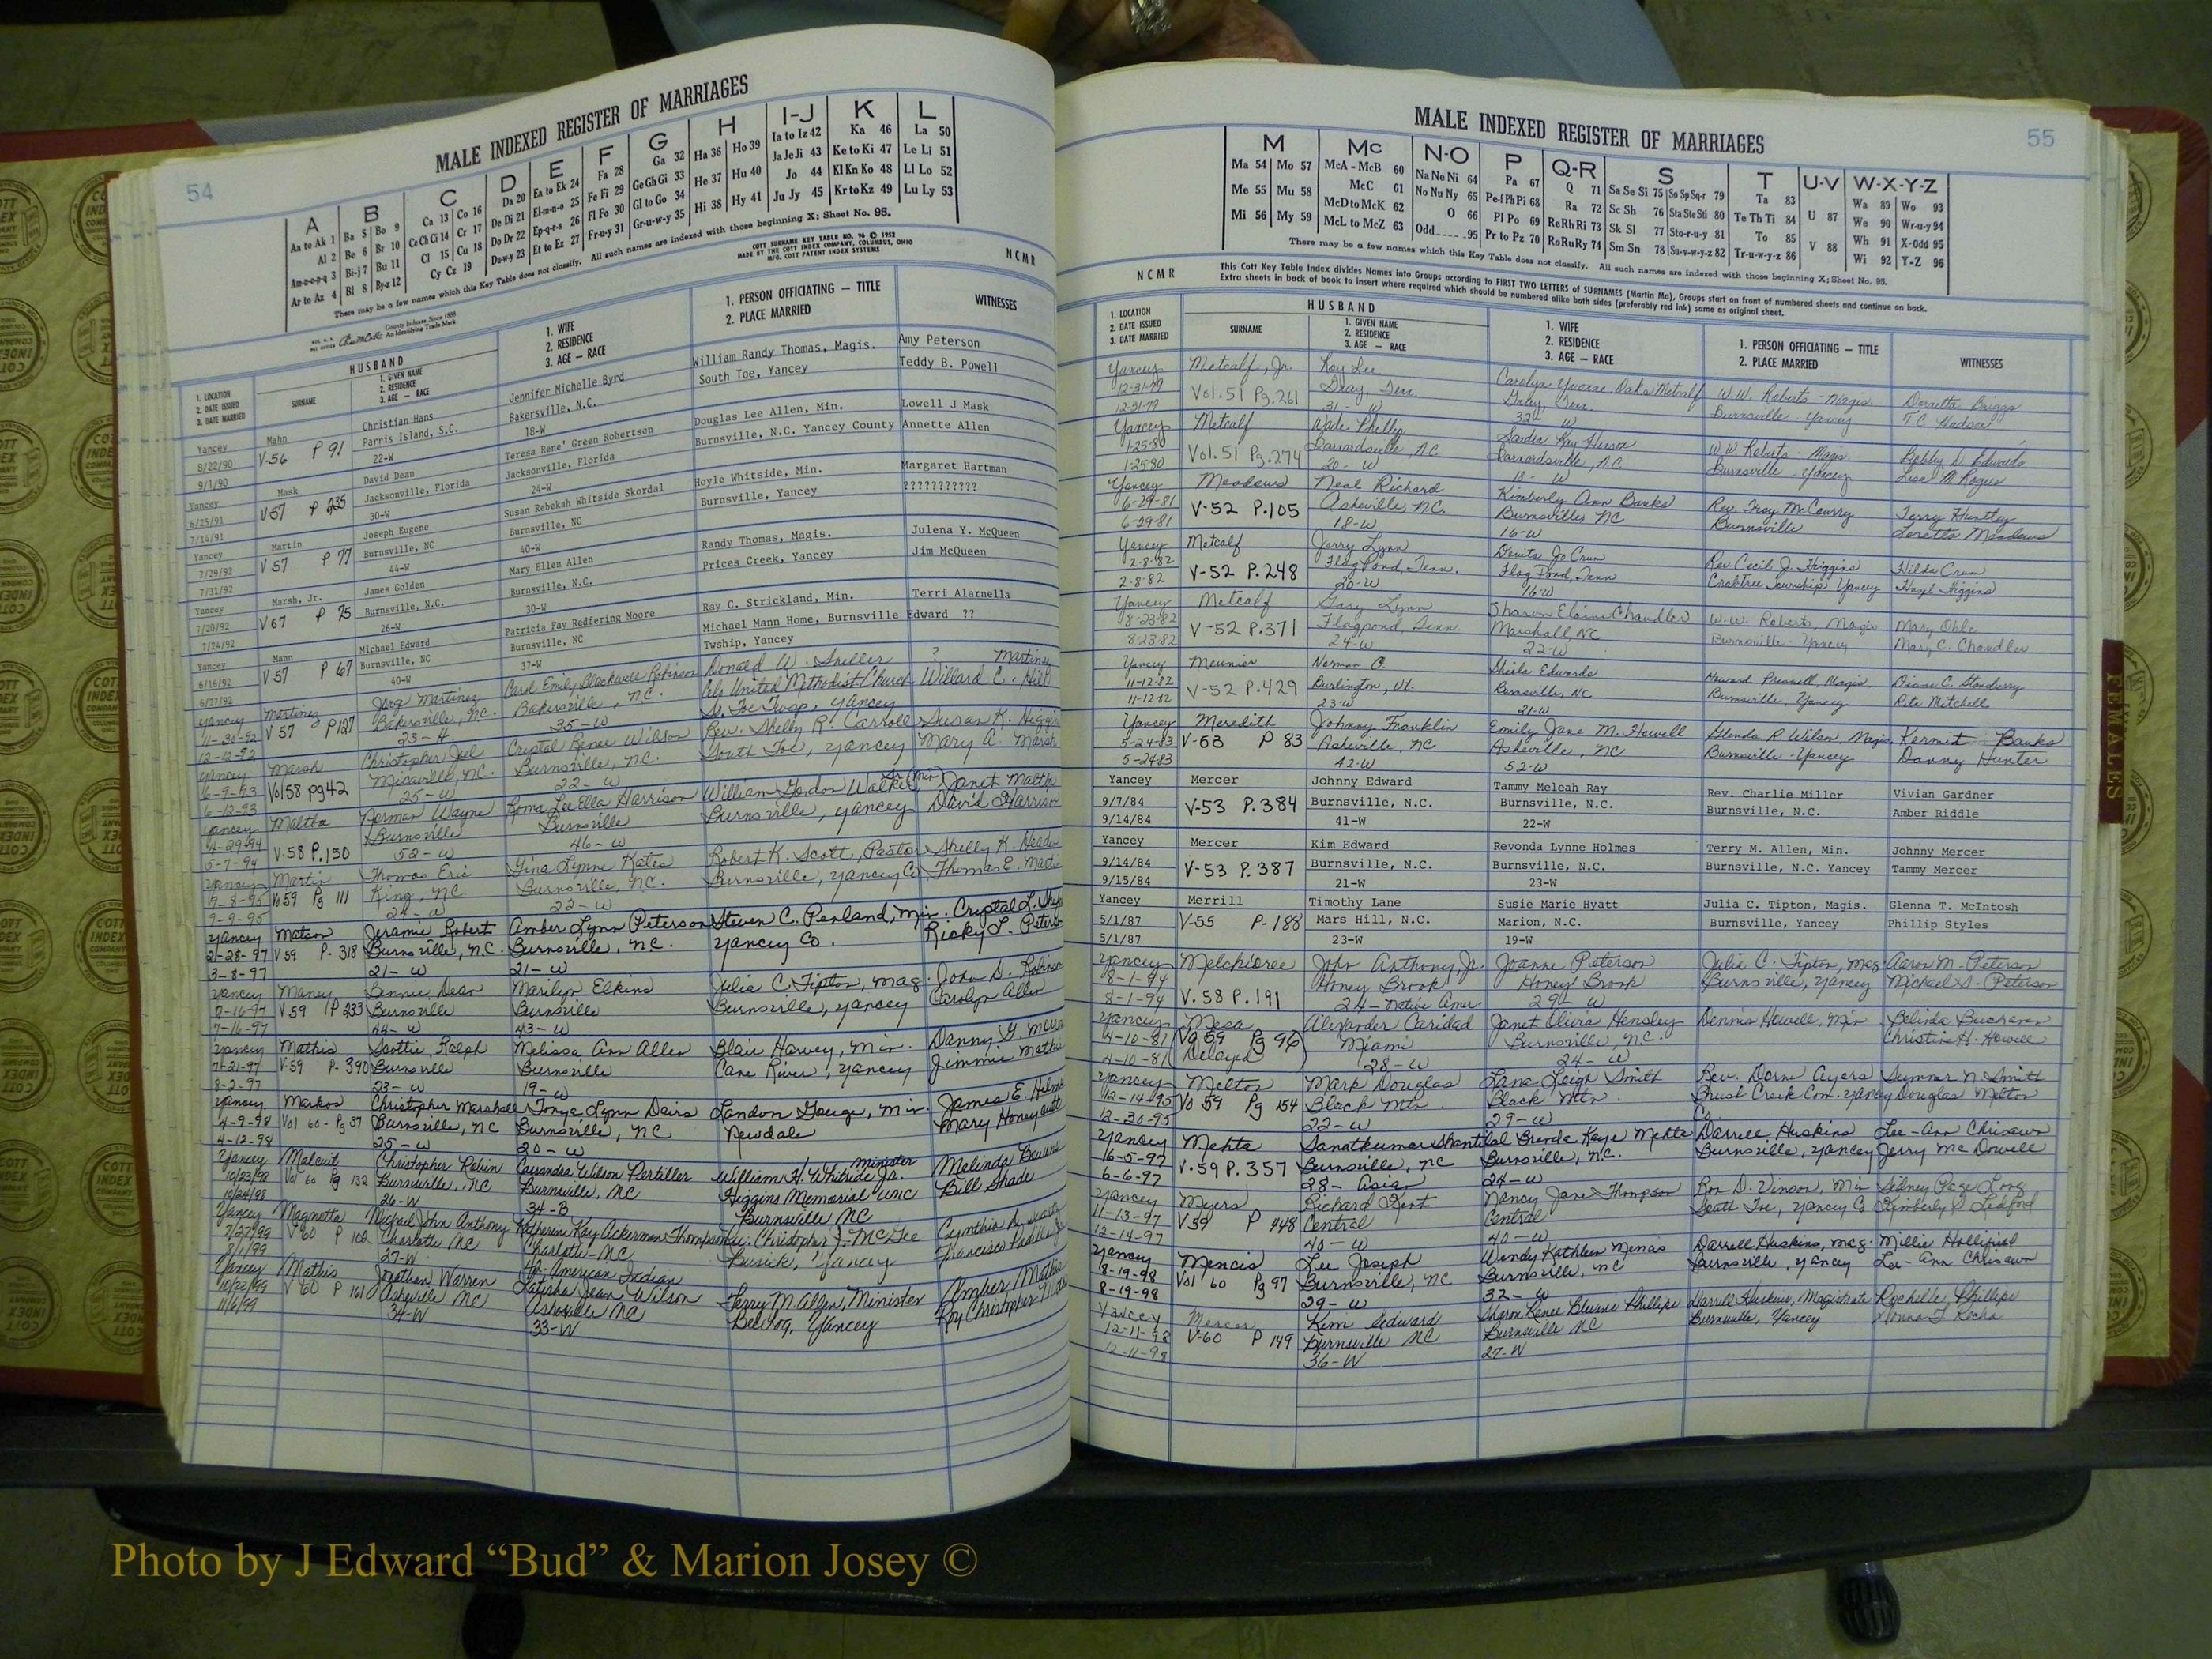 54
MALE INDEXED REGISTER OF MARRIAGES
A B C D E F G H I-J K L
Aa to Ak 1 Ba 5 Bo 9 Ca 13 Co 16 Da 20 Ea to Ek 24 Fa 28 Ga 32 Ha 36 Ho 39 Ia to Iz 42 Ka 46 La 50
Al 2 Be 6 Br 10 Ce Ch Ci 14 Cr 17 De Di 21 El-m-n-o 25 Fe Fi 29 Ge Gh Gi 33 He 37 Hu 40 Ja Je Ji 43 Ke to Ki 47 Le Li 51
Am-n-o-p-q 3 Bi-j 7 Bu 11 Cl 15 Cu 18 Do Dr 22 Ep-q-r-s 26 Fl Fo 30 Gl to Go 34 Hi 38 Hy 41 Jo 44 Kl Kn Ko 48 Ll Lo 52
Ar to Az 4 Bl 8 By-z 12 Cy Cz 19 Du-w-y 23 Et to Ez 27 Fr-u-y 31 Gr-u-w-y 35 Ju Jy 45 Kr to Kz 49 Lu Ly 53
There may be a few names which this Key Table does not classify. All such names are indexed with those beginning X; Sheet No. 95.
COTT SURNAME KEY TABLE NO. 96 © 1952
MADE BY THE COTT INDEX COMPANY, COLUMBUS, OHIO
MFG. COTT PATENT INDEX SYSTEMS
NCMR
County Indexes Since 1888
An Identifying Trade Mark
HUSBAND
1. LOCATION
2. DATE ISSUED
3. DATE MARRIED
SURNAME
1. GIVEN NAME
2. RESIDENCE
3. AGE — RACE
1. WIFE
2. RESIDENCE
3. AGE — RACE
1. PERSON OFFICIATING — TITLE
2. PLACE MARRIED
WITNESSES
Yancey Mahn Christian Hans Jennifer Michelle Byrd William Randy Thomas, Magis. Amy Peterson
8/22/90 V-56 P 91 Parris Island, S.C. Bakersville, N.C. South Toe, Yancey Teddy B. Powell
9/1/90 22-W 18-W
Yancey Mask David Dean Teresa Rene' Green Robertson Douglas Lee Allen, Min. Lowell J Mask
6/25/91 V-57 P 235 Jacksonville, Florida Jacksonville, Florida Burnsville, N.C. Yancey County Annette Allen
7/14/91 30-W 24-W
Yancey Martin Joseph Eugene Susan Rebekah Whitside Skordal Hoyle Whitside, Min. Margaret Hartman
7/29/92 V 57 P 77 Burnsville, NC Burnsville, NC Burnsville, Yancey ???????????
7/31/92 44-W 40-W
Yancey Marsh, Jr. James Golden Mary Ellen Allen Randy Thomas, Magis. Julena Y. McQueen
7/20/92 V 67 P 75 Burnsville, N.C. Burnsville, N.C. Prices Creek, Yancey Jim McQueen
7/24/92 26-W 30-W
Yancey Mann Michael Edward Patricia Fay Redfering Moore Ray C. Strickland, Min. Terri Alarnella
6/16/92 V 57 P 67 Burnsville, NC Burnsville, NC Michael Mann Home, Burnsville Edward ??
6/27/92 40-W 37-W Twship, Yancey
Yancey Martinez Martinez Carol Emily Blackwell Robinson Donald W. ? Martinez
11-30-92 V 57 P 127 Bakersville, NC. Bakersville, N.C. United Methodist Church Willard C. Hill
12-12-92 23-H. 35-W Twsp, Yancey
Yancey Marsh Christopher Joel Crystal Renee Wilson Rev. Shelby R. Carroll Susan K.
6-9-93 Vol 58 pg 42 Micaville, NC. Burnsville, N.C. South Toe, Yancey Mary A. Marsh
6-12-93 25-W 22-W
Yancey Maltba Norman Wayne Roma LeeElla Harrison William Gordon Janet Maltba
4-29-94 V.58 P.150 Burnsville Burnsville Burnsville, Yancey David Harrison
5-7-94 52-W 46-W
Yancey Martin Thomas Eric Tina Lynne Kates Robert K. Scott, Pastor Shelly K.
V 59 Pg 111 King, NC Burnsville, NC. Burnsville, Yancey Co Thomas E.
9-9-95 24-W 22-W
Yancey Matson Jeramie Robert Amber Lynn Peterson Steven C. Penland, Min. Crystal L.
2-28-97 V 59 P-318 Burnsville, N.C. Burnsville, NC. Yancey Co. Ricky L.
3-8-97 21-W 21-W
Yancey Maney Bennie Dean Marilyn Elkins Julia C. Tipton, Mag. John D.
V 59 P 233 Burnsville Burnsville Burnsville, Yancey Carolyn Allen
7-16-97 44-W 43-W
Yancey Mathis Scottie Ralph Melissa Ann Allen Blair Harvey, Min. Danny G.
7-21-97 V-59 P-390 Burnsville Burnsville Cane River, Yancey Jimmie
8-2-97 23-W 19-W
Yancey Christopher Marshall Tonya Lynn Landon Gouge, Min. James E.
4-9-98 Vol 60-Pg 37 Burnsville, NC Burnsville, NC Newdale Mary Honeycutt
4-12-98 25-W 20-W
Yancey Malcuit Christopher Robin Cassandra Wilson William H. Whiteside Jr. Minister Melinda
10/23/98 Vol 60 Pg 132 Burnsville, NC Burnsville, NC Higgins Memorial UMC Bill Shade
10/24/98 26-W 34-B Burnsville NC
Yancey Magnotta Michael John Anthony Katherine Kay Ackerman Thompson Christopher J. McGee Cynthia
7/27/99 V 60 P 102 Charlotte NC Charlotte-NC Busick, Yancey Francisco
8/1/99 27-W 42-American Indian
Yancey Mathis Jonathan Warren Latisha Jean Wilson Terry M. Allen, Minister Amber Mathis
10/22/99 V 60 P 161 Asheville NC Asheville NC Bolens, Yancey Roy Christopher
11/6/99 34-W 33-W
55
MALE INDEXED REGISTER OF MARRIAGES
M Mc N-O P Q-R S T U-V W-X-Y-Z
Ma 54 Mo 57 McA - McB 60 Na Ne Ni 64 Pa 67 Q 71 Sa Se Si 75 So Sp Sq-r 79 Ta 83 U 87 Wa 89 Wo 93
Me 55 Mu 58 McC 61 No Nu Ny 65 Pe-f Ph Pi 68 Ra 72 Sc Sh 76 Sta Ste Sti 80 Te Th Ti 84 We 90 Wr-u-y 94
Mi 56 My 59 McD to McK 62 O 66 Pl Po 69 Re Rh Ri 73 Sk Sl 77 Sto-r-u-y 81 To 85 V 88 Wh 91 X-Odd 95
McL to McZ 63 Odd 95 Pr to Pz 70 Ro Ru Ry 74 Sm Sn 78 Su-v-w-y-z 82 Tr-u-w-y-z 86 Wi 92 Y-Z 96
There may be a few names which this Key Table does not classify. All such names are indexed with those beginning X; Sheet No. 95.
NCMR
This Cott Key Table Index divides Names into Groups according to FIRST TWO LETTERS of SURNAMES (Martin Ma), Groups start on front of numbered sheets and continue on back.
Extra sheets in back of book to insert where required which should be numbered alike both sides (preferably red ink) same as original sheet.
HUSBAND
1. LOCATION
2. DATE ISSUED
3. DATE MARRIED
SURNAME
1. GIVEN NAME
2. RESIDENCE
3. AGE — RACE
1. WIFE
2. RESIDENCE
3. AGE — RACE
1. PERSON OFFICIATING — TITLE
2. PLACE MARRIED
WITNESSES
Yancey Metcalf, Jr. Roy Lee Carolyn Yvonne Oaks Metcalf W.W. Roberts - Magis. Dorretta Briggs
12-31-79 Vol.51 Pg.261 Gray, Tenn. Gray, Tenn. Burnsville - Yancey T.C. Hudson
12-31-79 31-W 32-W
Yancey Metcalf Wade Phillip Sandra Kay Hensor W.W. Roberts - Magis. Bobby D. Edwards
1-25-80 Vol.51 Pg.274 Barnardsville, NC Barnardsville, NC Burnsville - Yancey Lisa M.
1-25-80 20-W 18-W
Yancey Meadows Neal Richard Kimberly Ann Banks Rev. Troy McCurry Terry Huntley
6-29-81 V-52 P.105 Asheville, NC. Burnsville NC Burnsville Loretta Meadows
6-29-81 18-W 16-W
Yancey Metcalf Jerry Lynn Denita Jo Crum Rev. Cecil J. Higgins Hilda Crum
2-8-82 V-52 P.248 Flag Pond, Tenn. Flag Pond, Tenn Crabtree Township Yancey Hazel Higgins
2-8-82 20-W 16-W
Yancey Metcalf Gary Lynn Sharon Elaine Chandler W.W. Roberts, Magis Mary Ohle
8-23-82 V-52 P.371 Flagpond, Tenn. Marshall, NC Burnsville - Yancey Mary C. Chandler
8-23-82 24-W 22-W
Yancey Meunier Norman C. Sheila Edwards Howard Presnell, Magis. Diane C. Standerry
11-12-82 V-52 P.429 Burlington, Vt. Burnsville, NC Burnsville, Yancey Rita Mitchell
11-12-82 23-W 21-W
Yancey Meredith Johnny Franklin Emily Jane M. Howell Glenda R. Wilson, Magis. Kermit Banks
5-24-83 V-53 P 83 Asheville, NC Asheville, NC Burnsville - Yancey Danny Hunter
5-24-83 42-W 52-W
Yancey Mercer Johnny Edward Tammy Meleah Ray Rev. Charlie Miller Vivian Gardner
9/7/84 V-53 P.384 Burnsville, N.C. Burnsville, N.C. Burnsville, N.C. Amber Riddle
9/14/84 41-W 22-W
Yancey Mercer Kim Edward Revonda Lynne Holmes Terry M. Allen, Min. Johnny Mercer
9/14/84 V-53 P.387 Burnsville, N.C. Burnsville, N.C. Burnsville, N.C. Yancey Tammy Mercer
9/15/84 21-W 23-W
Yancey Merrill Timothy Lane Susie Marie Hyatt Julia C. Tipton, Magis. Glenna T. McIntosh
5/1/87 V-55 P-188 Mars Hill, N.C. Marion, N.C. Burnsville, Yancey Phillip Styles
5/1/87 23-W 19-W
Yancey Melchiorre John Anthony, Jr. Joanne Peterson Julia C. Tipton, Mag. Aaron M. Peterson
8-1-94 V.58 P.191 Honey Brook Honey Brook Burnsville, Yancey Michael S. Peterson
8-1-94 24-Native Amer 29-W
Yancey Mesa Alexander Caridad Janet Olivia Hensley Dennis Howell, Min Belinda Buchanan
4-10-81 Vol 59 Pg 96 Miami Burnsville, N.C. Christine H. Howell
4-10-81 Delayed 28-W 24-W
Yancey Melton Mark Douglas Lana Leigh Smith Rev. Dorn Ayers Sumner N Smith
12-14-95 Vo 59 Pg 154 Black Mtn Black Mtn. Brush Creek Com. Yancey Co. Douglas Melton
12-30-95 22-W 29-W
Yancey Mehta Sanatkumar Shantilal Brenda Kaye Mehta Darrell Huskins Lee-Ann Chrisawn
V.59 P.357 Burnsville, NC Burnsville, N.C. Burnsville, Yancey Jerry McDowell
6-6-97 28-Asian 24-W
Yancey Myers Richard Kent Nancy Jane Thompson Ron D. Vinson, Min Sidney Page Long
11-13-97 V59 P 448 Central Central South Toe, Yancey Co Kimberly S Ledford
12-14-97 40-W 40-W
Yancey Mencis Lee Joseph Wendy Kathleen Mencis Darrell Huskins, Mag. Millie Hollifield
8-19-98 Vol 60 Pg 97 Burnsville, NC Burnsville, NC Burnsville, Yancey Lee-Ann Chrisawn
8-19-98 29-W 32-W
Yancey Mercer Kim Edward Sharon Renee Phillips Darrell Huskins, Magistrate Rochelle Phillips
12-11-98 V-60 P 149 Burnsville NC Burnsville NC Burnsville, Yancey
12-11-98 36-W 27-W
FEMALES
Photo by J Edward “Bud” & Marion Josey ©